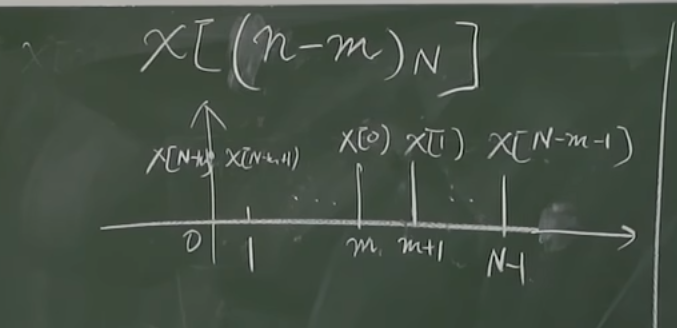 x[(n-m)N]
x[N-m] x[N-m+1) ... x[0) x[1) ... x[N-m-1)
0 1 m m+1 N-1